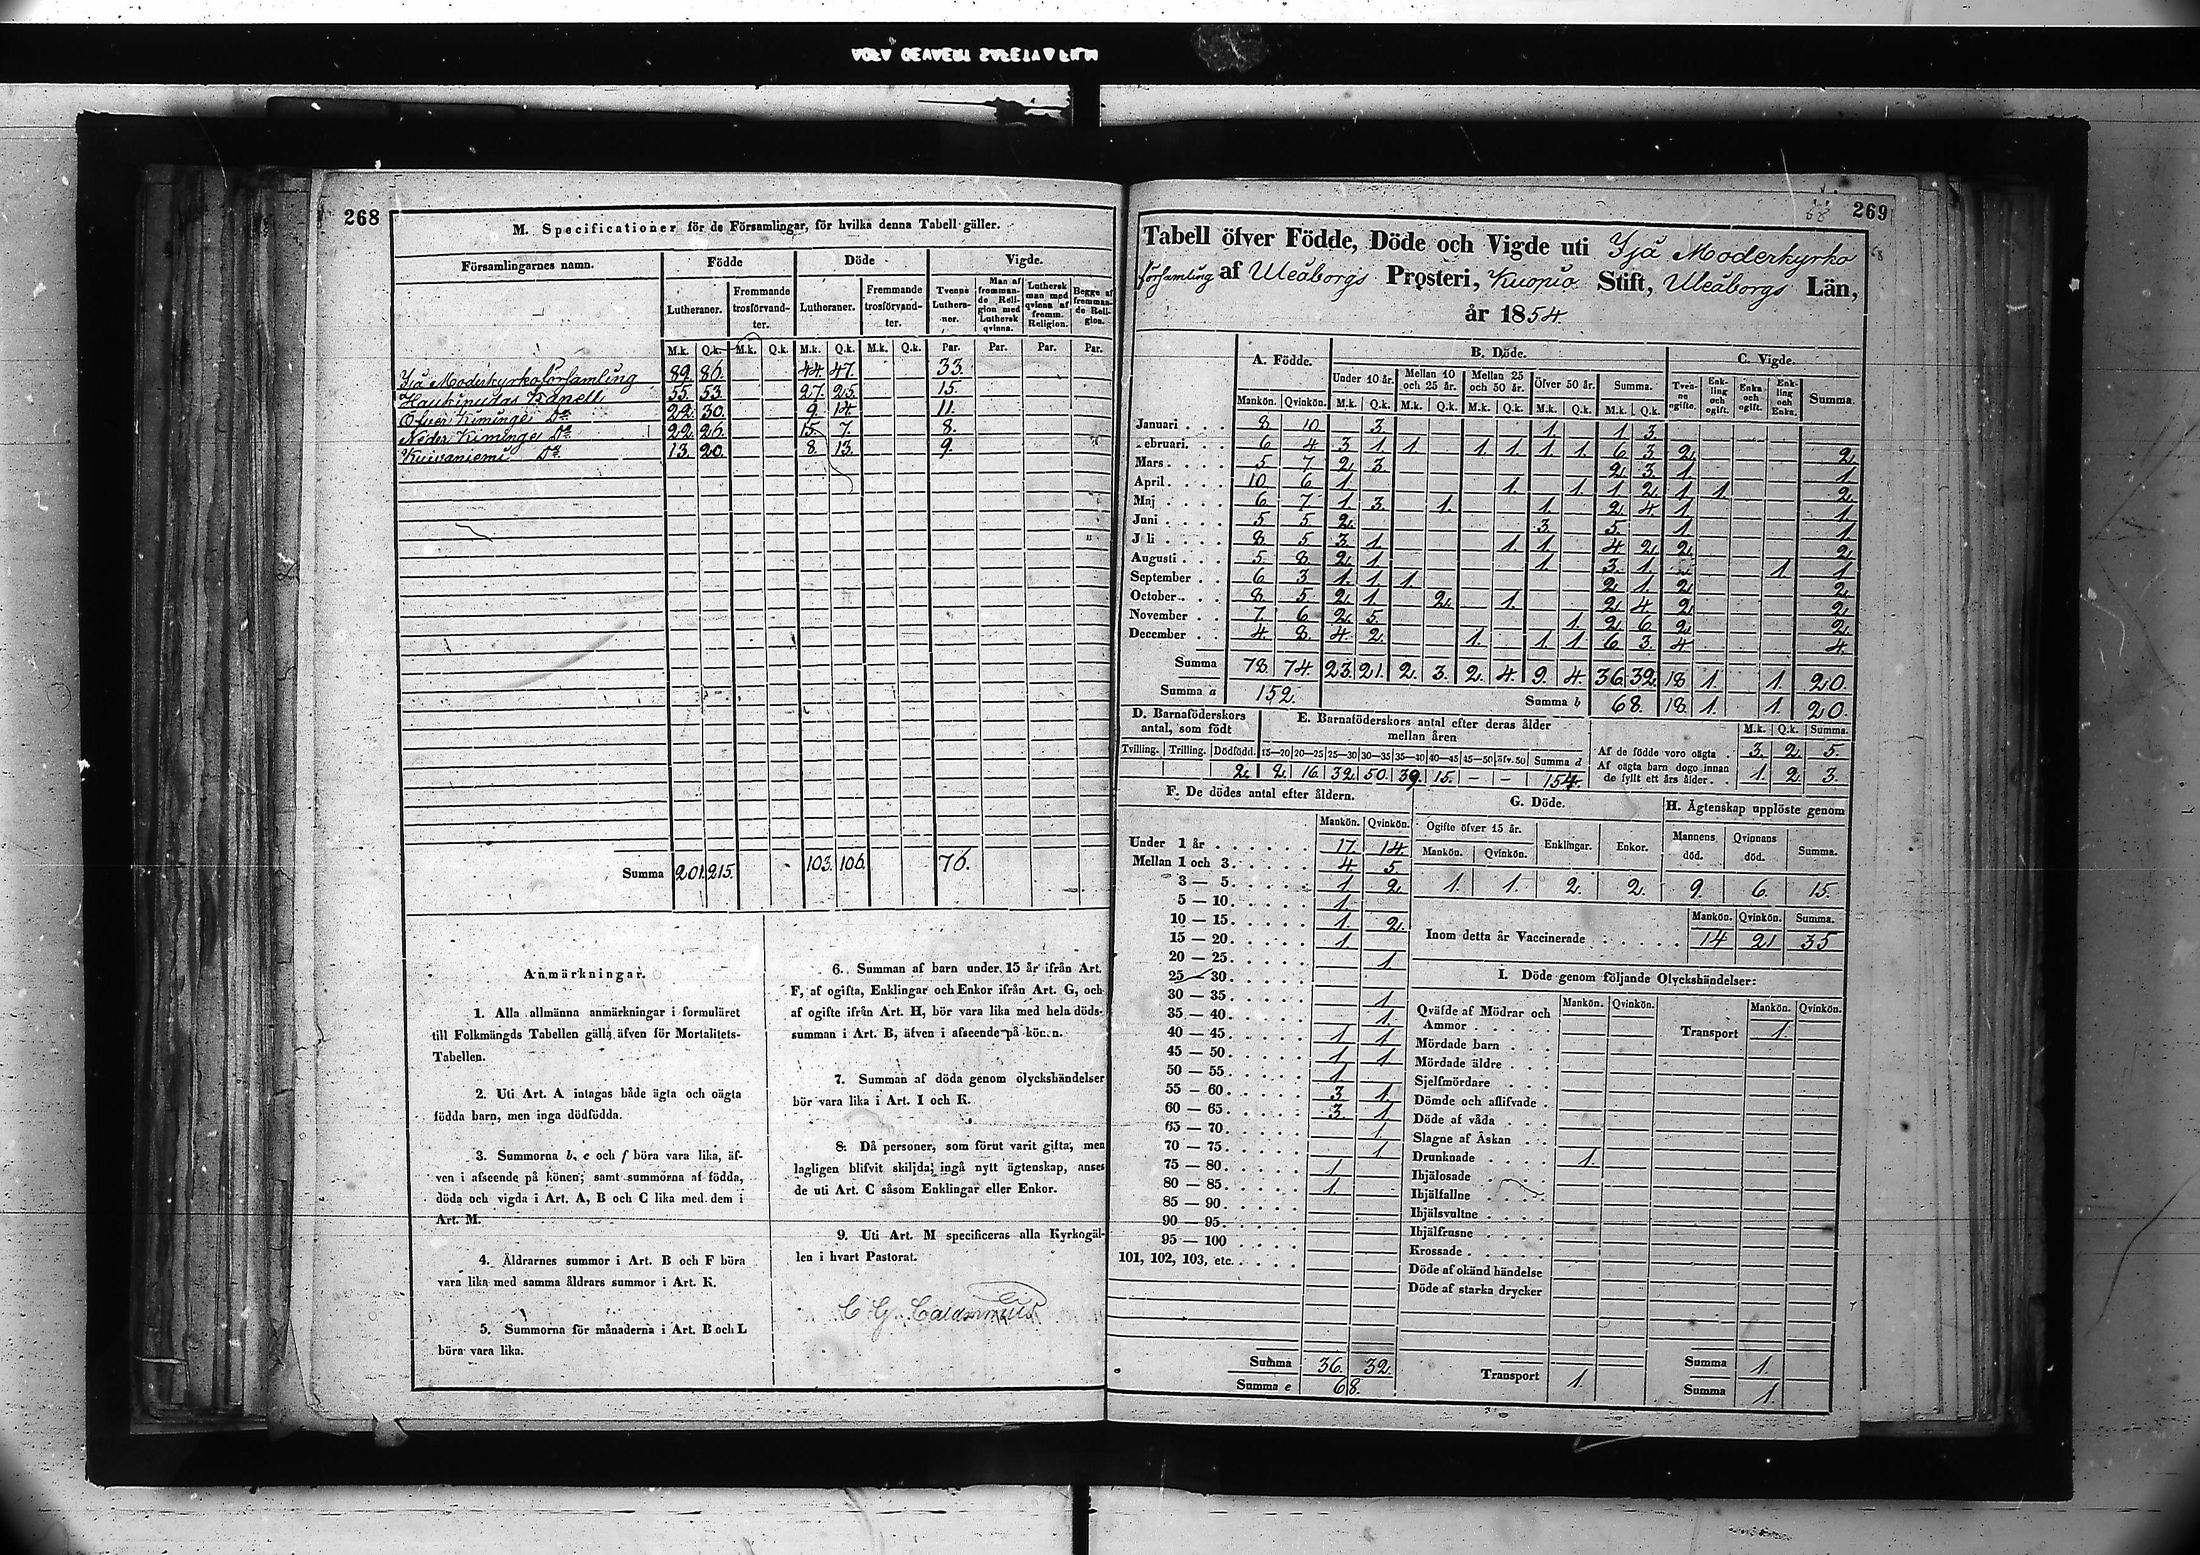 268
M. Specificationer för de Församlingar, för hvilka denna Tabell gäller.
Församlingarnes namn. Födde Döde Vigde.
Lutheraner. Fremmande trosförvandter. Lutheraner. Fremmande trosförvandter. Tvenne Lutheraner. Man af fremmande Religion med Luthersk qvinna. Luthersk man med qvinna af fremm. Religion. Begge af fremmande Religion.
M.k. Q.k. M.k. Q.k. M.k. Q.k. M.k. Q.k. Par. Par. Par. Par.
Ijå Moderkyrkoförsamling 89. 86. 44. 47. 33.
Haukipudas Kapell 55. 53. 27. 25. 15.
Öfver Kiminge Do 22. 30. 9. 14. 11.
Neder Kiminge Do 22. 26. 15. 7. 8.
Kuivaniemi Do 13. 20. 8. 13. 9.
Summa 201. 215. 103. 106. 76.
Anmärkningar.
1. Alla allmänna anmärkningar i formuläret
till Folkmängds Tabellen gälla äfven för Mortalitets-
Tabellen.
2. Uti Art. A intagas både ägta och oägta
födda barn, men inga dödfödda.
3. Summorna b, e och f böra vara lika, äf-
ven i afseende på könen; samt summorna af födda,
döda och vigda i Art. A, B och C lika med dem i
Art. M.
4. Äldrarnes summor i Art. B och F böra
vara lika med samma åldrars summor i Art. K.
5. Summorna för månaderna i Art. B och L
böra vara lika.
6. Summan af barn under 15 år ifrån Art.
F, af ogifta, Enklingar och Enkor ifrån Art. G, och
af ogifte ifrån Art. H, bör vara lika med hela döds-
summan i Art. B, äfven i afseende på könen.
7. Summan af döda genom olyckshändelser
bör vara lika i Art. I och K.
8. Då personer, som förut varit gifta, men
lagligen blifvit skiljda, ingå nytt ägtenskap, anses
de uti Art. C såsom Enklingar eller Enkor.
9. Uti Art. M specificeras alla Kyrkogäl-
len i hvart Pastorat.
C G
68 269
Tabell öfver Födde, Döde och Vigde uti Ijå Moderkyrko
församling af Uleåborgs Prosteri, Kuopio Stift, Uleåborgs Län,
år 1854.
A. Födde. B. Döde. C. Vigde.
Under 10 år. Mellan 10 och 25 år. Mellan 25 och 50 år. Öfver 50 år. Summa. Tvenne ogifte. Enkling och ogift. Enka och ogift. Enkling och Enka. Summa.
Mankön. Qvinkön. M.k. Q.k. M.k. Q.k. M.k. Q.k. M.k. Q.k. M.k. Q.k.
Januari 8 10 3. 1. 1 3.
ebruari. 6 4 3 1 1 1. 1 1 1. 6 3 2 2
Mars 5 7 2 3 2 3 1 1
April 10 6 1 1. 1. 1 2 1 1. 2
Maj 6 7 1 3 1. 1. 2 4 1 1
Juni 5 5 2 3 5. 1 1
J li 8 5 3 1 1 1 4 2 2 2
Augusti 5 8 2 1 1 3. 1. 1. 1
September 6 3 1. 1. 1 2 1 2 2
October 8 5 2 1 2 1. 2 4 2 2
November 7. 6 2 5. 1. 2 6 2 2
December 4. 8. 4. 2. 1. 1. 1 6 3. 4 4.
Summa 78. 74. 23. 21. 2. 3. 2. 4. 9. 4 36. 32. 18 1. 1. 20.
Summa a 152. Summa b 68. 18. 1. 1. 20.
D. Barnaföderskors antal, som födt E. Barnaföderskors antal efter deras ålder mellan åren M.k. Q.k. Summa.
Tvilling. Trilling. Dödfödd. 15—20 20—25 25—30 30—35 35—40 40—45 45—50 öfv. 50 Summa d
2. 2. 16. 32. 50. 39. 15. — — 154.
Af de födde voro oägta 3. 2 5.
Af oägta barn dogo innan de fyllt ett års ålder 1. 2 3.
F. De dödes antal efter åldern.
Mankön. Qvinkön.
Under 1 år 17. 14.
Mellan 1 och 3 4. 5.
3 — 5 1. 2.
5 — 10 1.
10 — 15 1. 2.
15 — 20 1.
20 — 25 1.
25 — 30
30 — 35 1
35 — 40 1.
40 — 45 1 1
45 — 50 1. 1
50 — 55 1.
55 — 60 3 1.
60 — 65 3. 1
65 — 70 1.
70 — 75 1
75 — 80 1
80 — 85 1.
85 — 90
90 — 95
95 — 100
101, 102, 103, etc.
Summa 36. 32.
Summa e 68.
G. Döde.
Ogifte öfver 15 år. Enklingar. Enkor.
Mankön. Qvinkön.
1. 1. 2. 2.
H. Ägtenskap upplöste genom
Mannens död. Qvinnans död. Summa.
9. 6. 15.
Mankön. Qvinkön. Summa.
Inom detta år Vaccinerade 14 21 35
I. Döde genom följande Olyckshändelser:
Mankön. Qvinkön. Mankön. Qvinkön.
Qväfde af Mödrar och Ammor Transport 1.
Mördade barn
Mördade äldre
Sjelfmördare
Dömde och aflifvade
Döde af våda
Slagne af Åskan
Drunknade 1.
Ihjälosade
Ihjälfallne
Ihjälsvultne
Ihjälfrusne
Krossade
Döde af okänd händelse
Döde af starka drycker
Transport 1. Summa 1.
Summa 1.